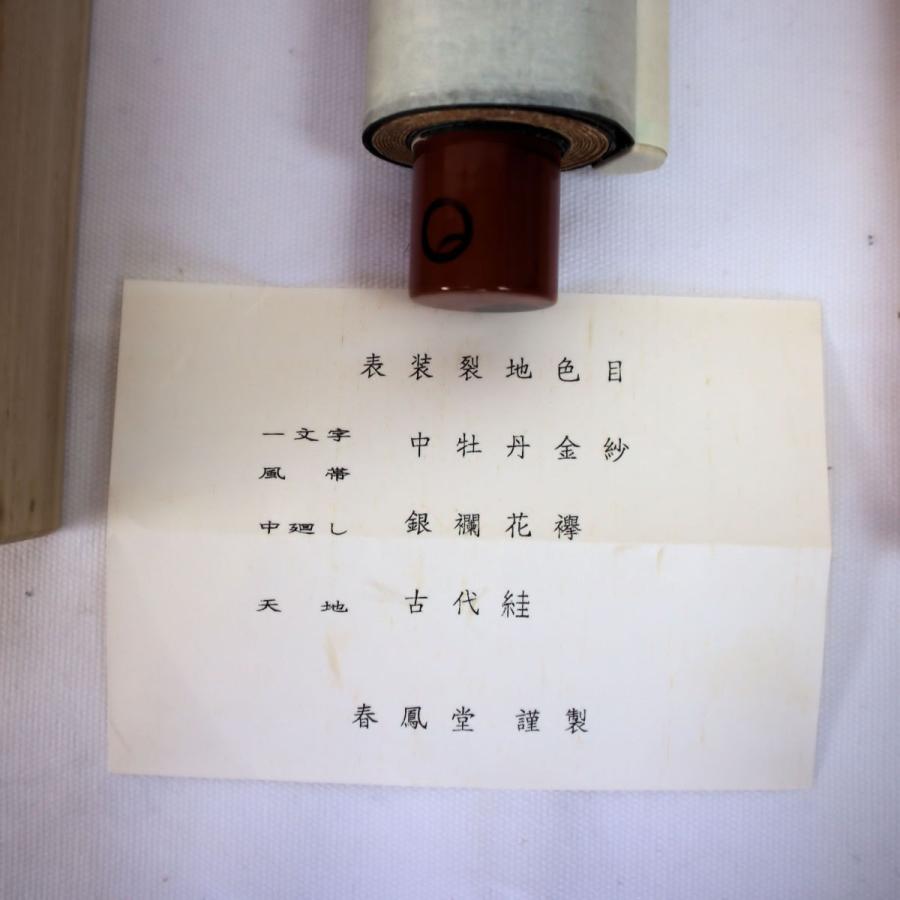 表装裂地色目
一文字 中牡丹金紗
風帯
中廻し 銀襴花襷
天地 古代絓
春鳳堂 謹製